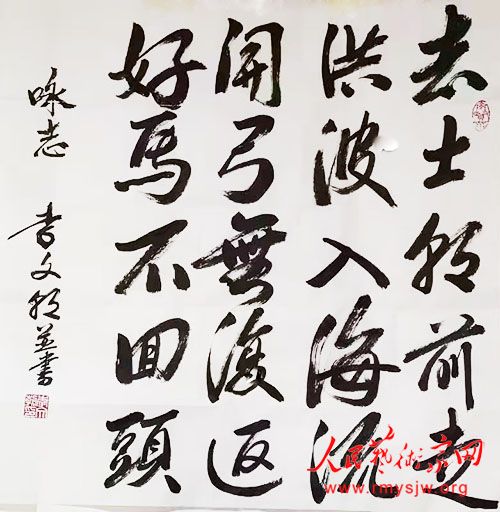 志士朝前走
洪波入海流
開弓無復返
好馬不回頭
咏志 李文朝並書
人民藝術家网
www.rmysjw.org